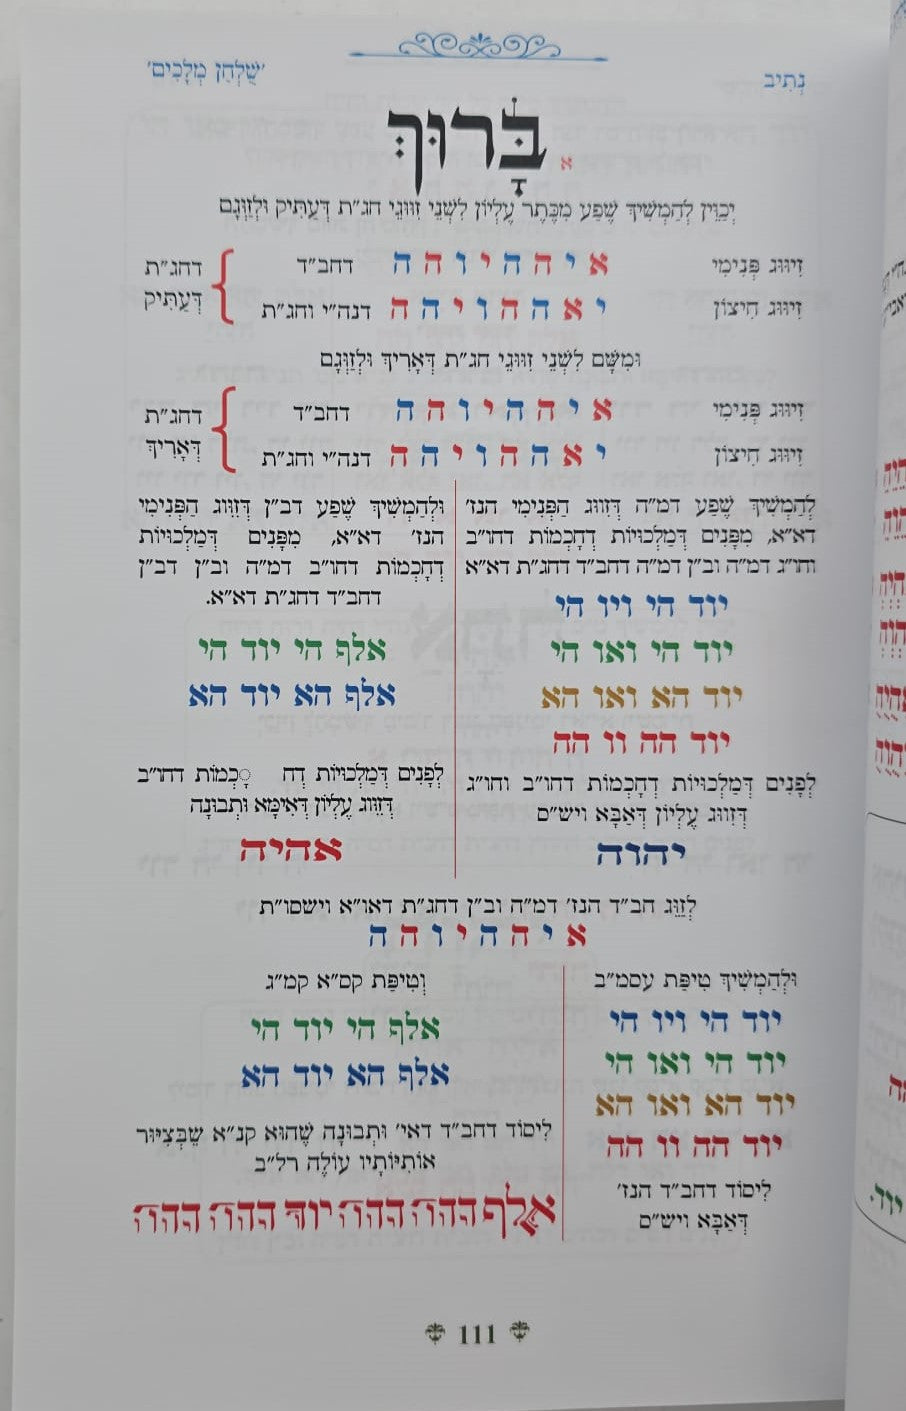 נְתִיב
׳שֻׁלְחַן מְלָכִים׳
בָּרוּךְ
א
יְכַוֵּין לְהַמְשִׁיךְ שֶׁפַע מִכֶּתֶר עֶלְיוֹן לִשְׁנֵי זִוּוּגֵי חג״ת דְּעַתִּיק וּלְזַוְּגָם
זִיוּוּג פְּנִימִי א י ה ה י ו ה ה דחב״ד
זִיוּוּג חִיצוֹן י א ה ה ו י ה ה דנה״י וחג״ת
דחג״ת
דְּעַתִּיק
וּמִשָּׁם לִשְׁנֵי זִוּוּגֵי חג״ת דְּאָרִיךְ וּלְזַוְּגָם
זִיוּוּג פְּנִימִי א י ה ה י ו ה ה דחב״ד
זִיוּוּג חִיצוֹן י א ה ה ו י ה ה דנה״י וחג״ת
דחג״ת
דְּאָרִיךְ
לְהַמְשִׁיךְ שֶׁפַע דמ״ה דְּזִוּוּג הַפְּנִימִי הנז׳
דא״א, מִפָּנִים דְּמַלְכוּיוֹת דְחָכְמוֹת דחו״ב
וחו״ג דמ״ה וב״ן דמ״ה דחב״ד דחג״ת דא״א
יוד הי ויו הי
יוד הי ואו הי
יוד הא ואו הא
יוד הה וו הה
לְפָנִים דְּמַלְכוּיוֹת דְחָכְמוֹת דחו״ב וחו״ג
דְּזִיוּוּג עֶלְיוֹן דְּאַבָּא ויש״ס
יהוה
וּלְהַמְשִׁיךְ שֶׁפַע דב״ן דְּזִוּוּג הַפְּנִימִי
הנז׳ דא״א, מִפָּנִים דְּמַלְכוּיוֹת
דְחָכְמוֹת דחו״ב דמ״ה וב״ן דב״ן
דחב״ד דחג״ת דא״א.
אלף הי יוד הי
אלף הא יוד הא
לְפָנִים דְּמַלְכוּיוֹת דְח ָכְמוֹת דחו״ב
דְּזִוּוּג עֶלְיוֹן דְּאִימָּא וּתְבוּנָה
אהיה
לְזַוֵּג חב״ד הנז׳ דמ״ה וב״ן דחג״ת דאו״א וישסו״ת
א י ה ה י ו ה ה
וּלְהַמְשִׁיךְ טִיפַּת עסמ״ב
יוד הי ויו הי
יוד הי ואו הי
יוד הא ואו הא
יוד הה וו הה
לִיסוֹד דחב״ד הנז׳
דְּאַבָּא ויש״ס
וְטִיפַּת קס״א קמ״ג
אלף הי יוד הי
אלף הא יוד הא
לִיסוֹד דחב״ד דאי׳ וּתְבוּנָה שֶׁהוּא קנ״א שֶׁבְּצִיּוּר
אוֹתִיּוֹתָיו עוֹלֶה רל״ב
111